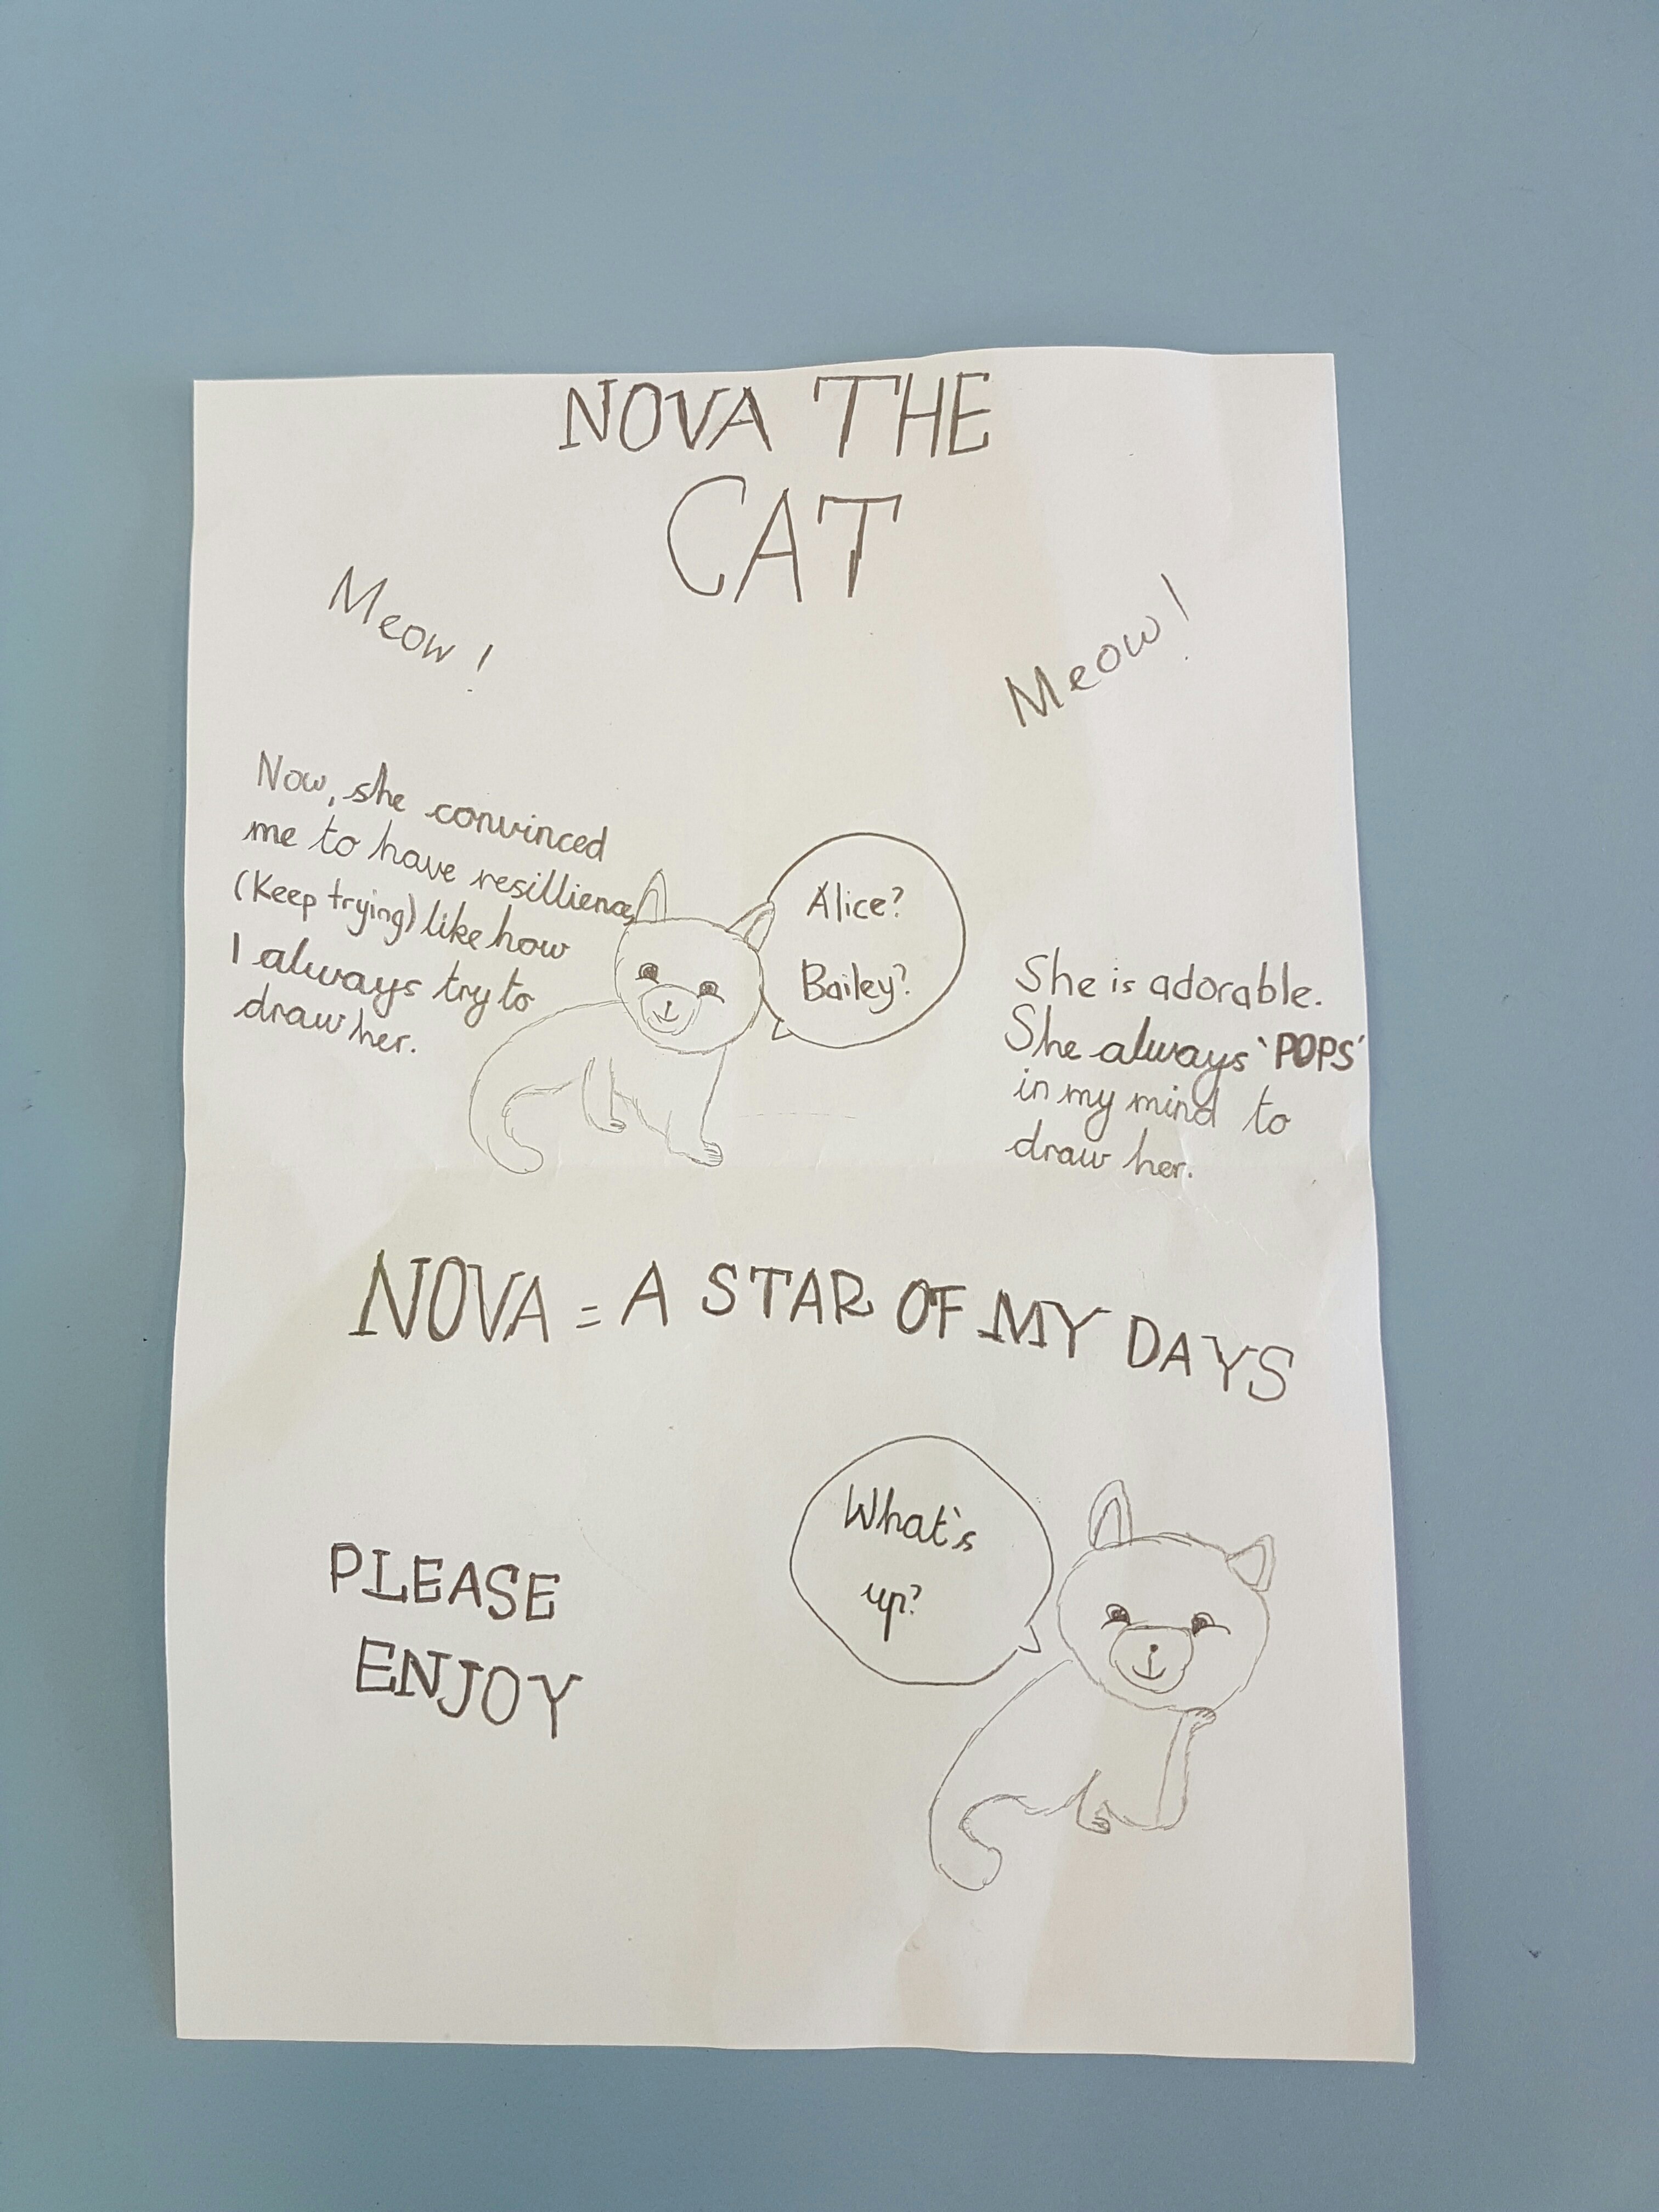 NOVA THE
CAT
Meow!
Meow!
Now, she convinced
me to have resillience,
(Keep trying) like how
I always try to
draw her.
Alice?
Bailey?
She is adorable.
She always 'POPS'
in my mind to
draw her.
NOVA = A STAR OF MY DAYS
What's
up?
PLEASE
ENJOY